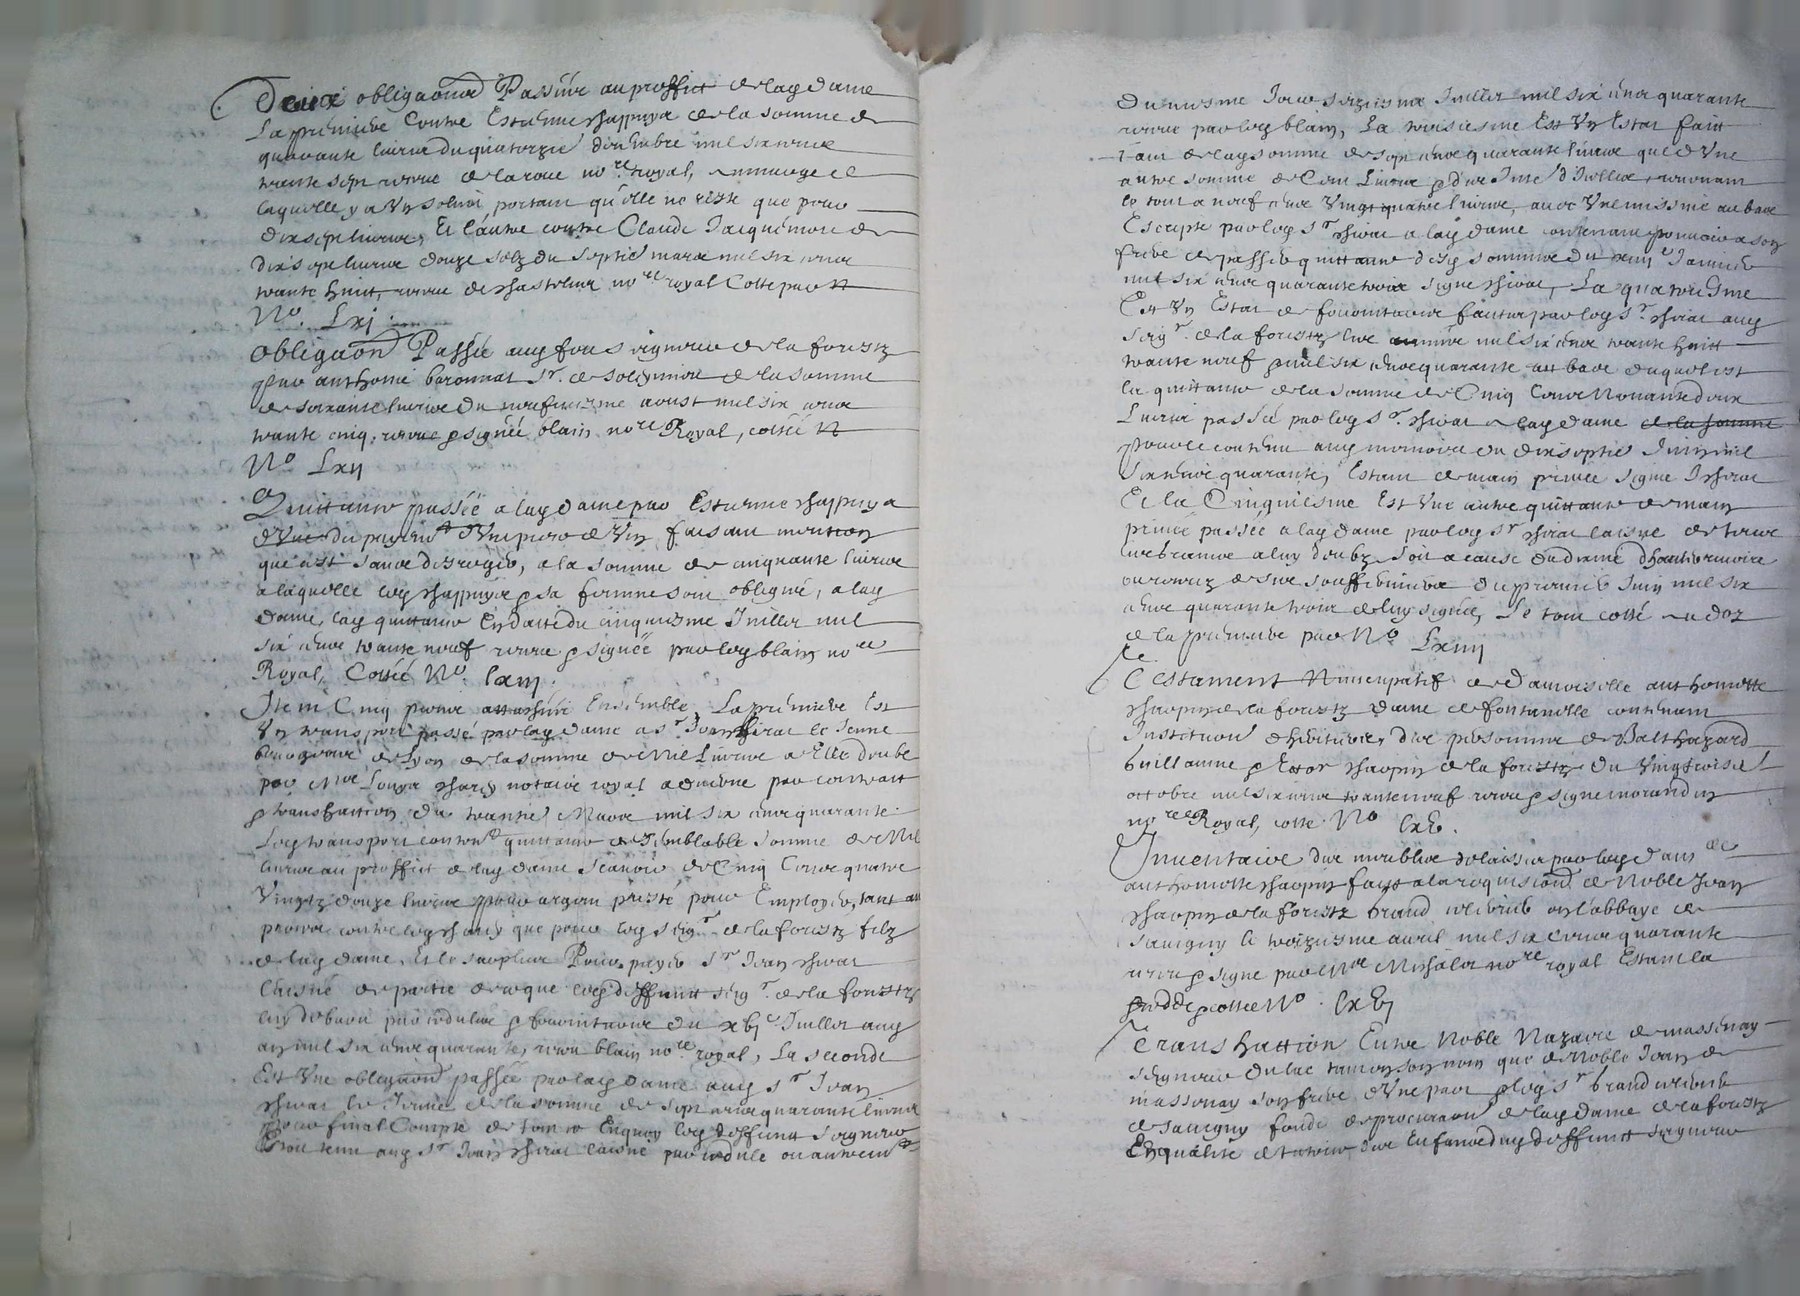 Deux obligaõns Passées au proffict de lad dame
La premiere contre Estienne Chappuya de la somme de
quarante livres du quatorzie decembre mil six cens
trante sept receue de la roue no.re royal, en marge de
laquelle y a un solvit portant qu'elle ne reste que pour
dix sept livres, Et l'autre contre Claude Jacquemore de
dix sept livres douze solz du septie mars mil six cens
trante huict, receue de Chastelus no.re royal Cottée par n
No. Lxj.
Obligaõn Passée aud feus seigneur de la forestz
Par anthoine baronnat Sr. de la somme
de soixante livres du neufviesme aoust mil six cens
trante cinq, receue & signée blain no.re Royal, cottée n
No Lxij
Quittance passée a lad dame par Estienne Chappuya
du payem d'Une piece de Vin faisant mention
que c'est sans desroger, a la somme de cinquante livres
a laquelle led Chappuya & sa femme sont obligués, a lad
dame, lad quittance En datte du cinquiesme Juillet mil
six cens trante neuf receue & signée par led blain no.re
Royal, Cottée No. lxiij.
Item Cinq pieces attachées Ensemble, La premiere Est
Un transport passé par lad dame a Sr. Jean Chirat le Jeune
bourgeois de Lyon de la somme de Mil Livres a Elle deube
par Me Louys notaire royal par contract
& transhaction du trantie Mars mil six cens quarante
Led transport contenant quittance de semblable somme de Mil
livres au proffict de lad dame scavoir de Cinq Cens quatre
Vingtz douze livres pour argent presté pour Employer, tant au
proces contre led que pour led seigr. de la forestz filz
de lad dame, Et le surplus Pour payer Sr. Jean Chirat
l'aisné de partie de ce que led deffunct seigr. de la forestz
luy debvoit par cedules & fournitures du xbje Juillet aud
an mil six cens quarante, receu blain no.re royal, La seconde
Est Une obligaõn passée par lad dame aud Sr. Jean
Chirat le Jeune de la somme de sept cens quarante livres
pour final Compte de tout ce Enquoy led deffunct seigneur
Estoit tenu aud Sr. Jean Chirat l'aisné par cedule ou autrem
du mesme Jour seiziesme Juillet mil six cens quarante
receue par led blain, La troisiesme Est Un Estat faict
tant de lad somme de sept cens quarante livres que d'Une
autre somme de Cent Livres & des Int d'Icelles, revenant
le tout a neuf cens Vingt quatre livres, avec Une missive au bas
Escripte par led Sr. Chirat a lad dame contenant pouvoir a son
frere de passer quittance desd sommes du xiiije Janvier
mil six cens quarante trois signé Chirat, La quatriesme
Est Un Estat de fournitures faictes par led Sr. Chirat aud
seigr. de la forestz les années mil six cens trante huict
trante neuf & mil six cens quarante au bas duquel est
la quittance de la somme de Cinq Cens Nonante deux
Livres passée par led Sr. Chirat a lad dame de la somme
contenue aud memoire du dixseptie Juin mil
six cens quarante, Estant de main privée signé J Chirat
Et la Cinquiesme Est Une autre quittance de main
privée passée a lad dame par led Sr. Chirat l'aisné de toute
les creances a luy deubz soit a cause du dariere
du premier Juin mil six
cens quarante trois de luy signée, Le tout cotté au doz
de la premiere par No Lxiiij
Testament Nuncupatif de Damoiselle anthoinette
Charpin de la forestz Dame de fontanelle contenant
Institution d'heritiers, des personnes de Balthazard
Guillaume & Ector Charpin de la forestz du Vingtroisie
octobre mil six cens trante neuf receu & signé morandin
no.re Royal, cotté No LxV.
Inventaire des meubles delaissés par lad dam.lle
anthoinette Charpin faict a la requisition de Noble Jean
Charpin de la forestz Grand celerier en l'abbaye de
Savigny le treiziesme avril mil six Cens quarante
receu & signé par Me Michalet no.re royal Estant la
cottée No. lxVj
Transhaction Entre Noble Nazaire de massenay
seigneur du lac tant en son nom que de Noble Jean de
massenay son frere d'Une part & led Sr. Grand celerier
de Savigny fondé de procuraõn de lad dame de la forestz
En qualité de tutrice des Enfans dud deffunct seigneur